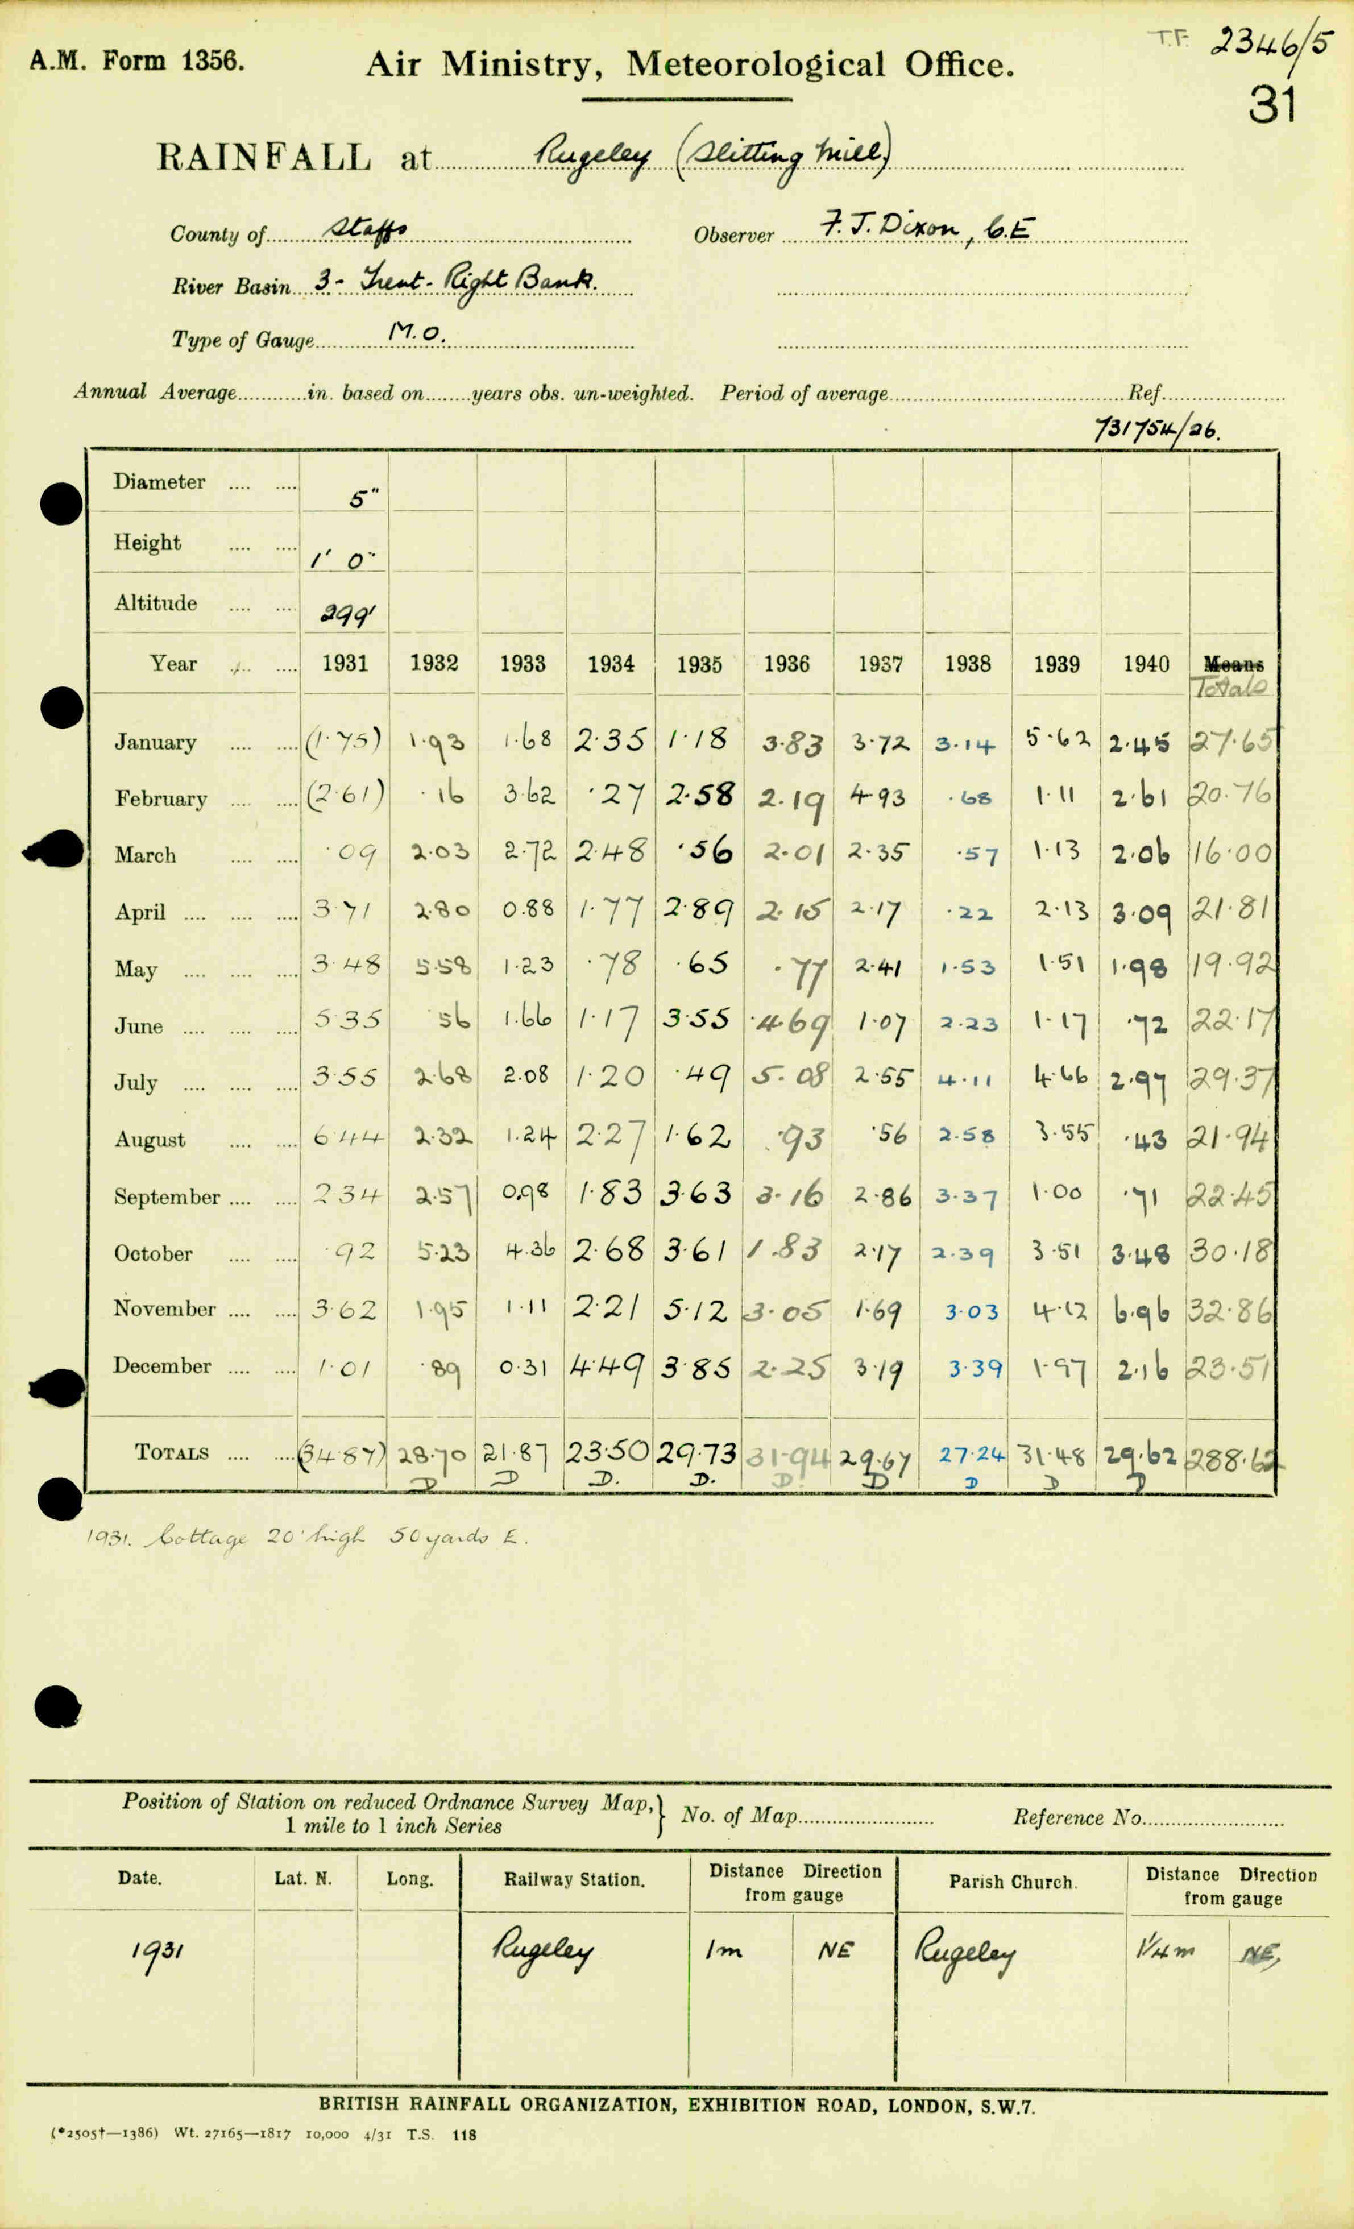 T.F. 2346/5
A.M. Form 1356. Air Ministry, Meteorological Office.
31
RAINFALL at Rugeley (Slitting Mill)
County of Staffs Observer F. J. Dixon, C.E
River Basin 3- Trent- Right Bank.
Type of Gauge M.O.
Annual Average in. based on years obs. un-weighted. Period of average Ref.
731754/26.
Diameter 5"
Height 1' 0"
Altitude 299'
Year 1931 1932 1933 1934 1935 1936 1937 1938 1939 1940 Means
Totals
January (1.75) 1.93 1.68 2.35 1.18 3.83 3.72 3.14 5.62 2.45 27.65
February (2.61) .16 3.62 .27 2.58 2.19 4.93 .68 1.11 2.61 20.76
March .09 2.03 2.72 2.48 .56 2.01 2.35 .57 1.13 2.06 16.00
April 3.71 2.80 0.88 1.77 2.89 2.15 2.17 .22 2.13 3.09 21.81
May 3.48 5.58 1.23 .78 .65 .77 2.41 1.53 1.51 1.98 19.92
June 5.35 .56 1.66 1.17 3.55 4.69 1.07 2.23 1.17 .72 22.17
July 3.55 2.68 2.08 1.20 .49 5.08 2.55 4.11 4.66 2.97 29.37
August 6.44 2.32 1.24 2.27 1.62 .93 .56 2.58 3.55 .43 21.94
September 2.34 2.57 0.98 1.83 3.63 3.16 2.86 3.37 1.00 .71 22.45
October .92 5.23 4.36 2.68 3.61 1.83 2.17 2.39 3.51 3.48 30.18
November 3.62 1.95 1.11 2.21 5.12 3.05 1.69 3.03 4.12 6.96 32.86
December 1.01 .89 0.31 4.49 3.85 2.25 3.19 3.39 1.97 2.16 23.51
TOTALS (34.87) 28.70 21.87 23.50 29.73 31.94 29.67 27.24 31.48 29.62 288.62
D D D. D. D. D D D D
1931. Cottage 20' high 50 yards E.
Position of Station on reduced Ordnance Survey Map, } No. of Map Reference No.
1 mile to 1 inch Series
Date. Lat. N. Long. Railway Station. Distance Direction Parish Church. Distance Direction
from gauge from gauge
1931 Rugeley 1m NE Rugeley 1¼m NE
BRITISH RAINFALL ORGANIZATION, EXHIBITION ROAD, LONDON, S.W.7.
(*2505†—1386) Wt. 27165—1817 10,000 4/31 T.S. 118